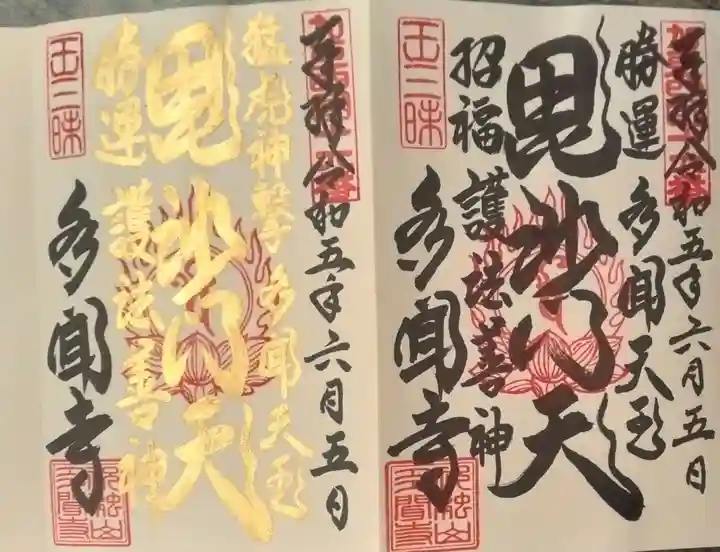 奉拝 令和五年六月五日
勝運 多聞天王
毘沙門天
招福 護法善神
多聞寺
王三昧
奉拝 令和五年六月五日
猛虎神撃 多聞天王
毘沙門天
勝運 護法善神
多聞寺
王三昧